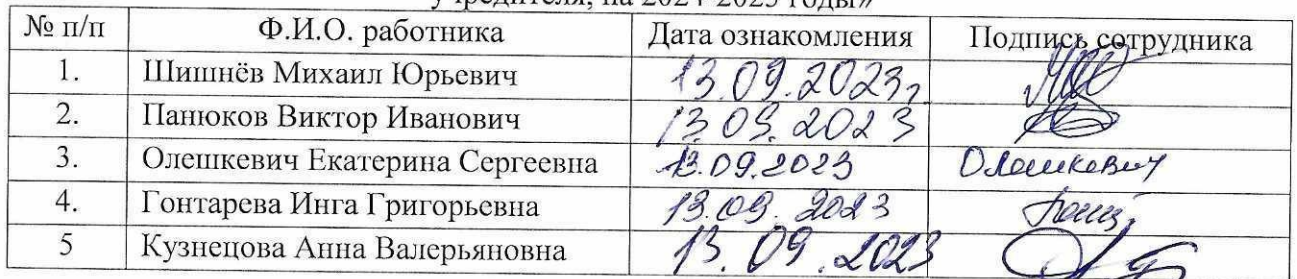 учредителя, на 2024-2025 годы»
№ п/п Ф.И.О. работника Дата ознакомления Подпись сотрудника
1. Шишнёв Михаил Юрьевич 13.09.2023г
2. Панюков Виктор Иванович 13.09.2023
3. Олешкевич Екатерина Сергеевна 13.09.2023 Олешкевич
4. Гонтарева Инга Григорьевна 13.09.2023
5 Кузнецова Анна Валерьяновна 13.09.2023